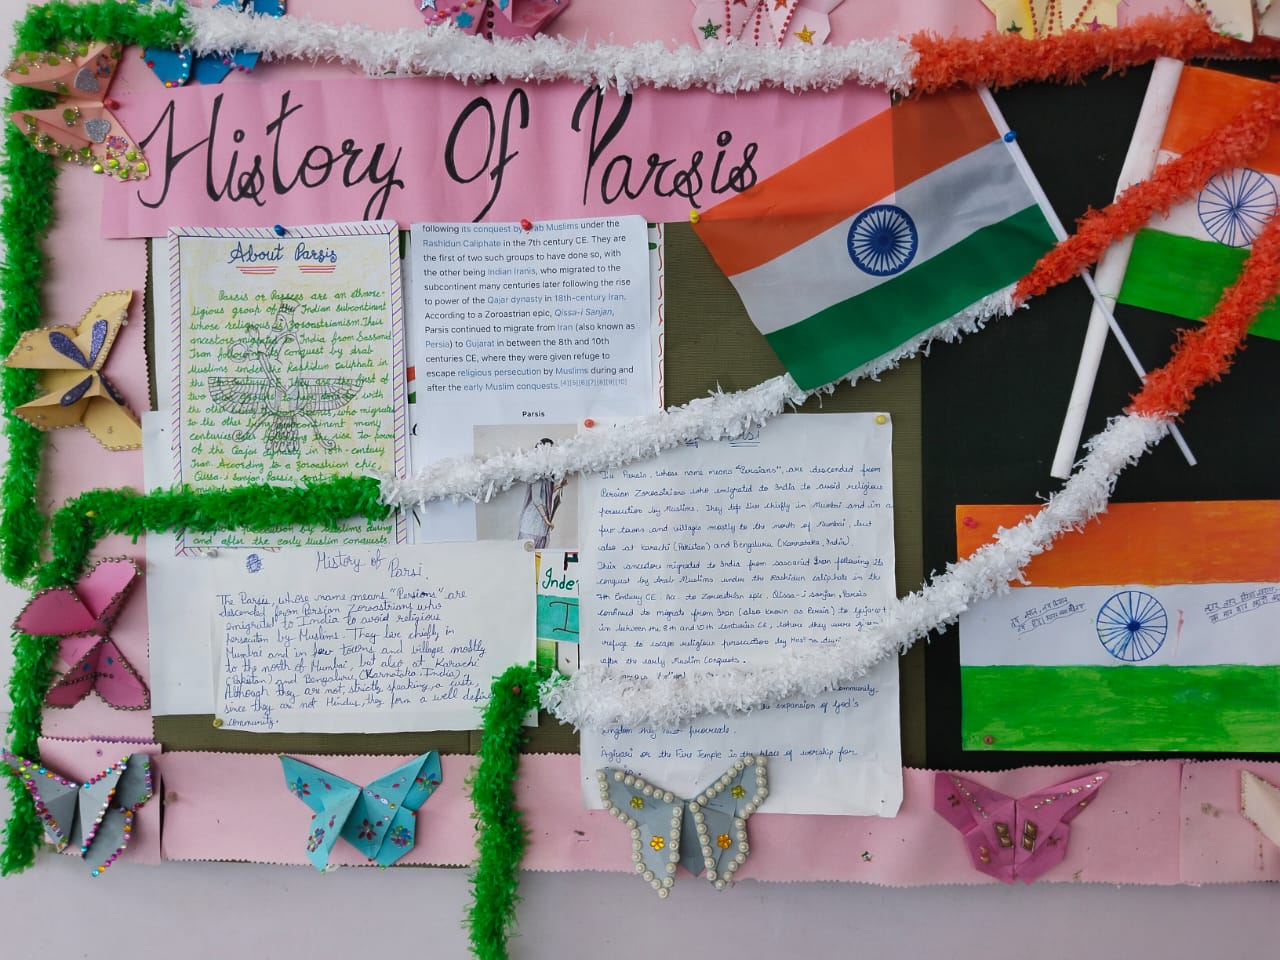 History Of Parsis
About Parsis
Parsis or Parsees are an ethno-
ligious group of the Indian subcontinent
whose religious is Zoroastrianism. Their
ancestors migrated to India from Sassanid
Iran following its conquest by Arab
Muslims under the Rashidun Caliphate in
the 7th century CE. They are the first of
two such groups to have done so, with
the other being Iranis, who migrated
to the subcontinent many
centuries later following the rise to power
of the Qajar dynasty in 18th-century
Iran. According to a Zoroastrian epic,
Qissa-i Sanjan, Parsis
by Muslims during
and after the early Muslim conquests.
following its conquest by Arab Muslims under the
Rashidun Caliphate in the 7th century CE. They are
the first of two such groups to have done so, with
the other being Indian Iranis, who migrated to the
subcontinent many centuries later following the rise
to power of the Qajar dynasty in 18th-century Iran.
According to a Zoroastrian epic, Qissa-i Sanjan,
Parsis continued to migrate from Iran (also known as
Persia) to Gujarat in between the 8th and 10th
centuries CE, where they were given refuge to
escape religious persecution by Muslims during and
after the early Muslim conquests.[4][5][6][7][8][9][10]
Parsis
History of
Parsi.
The Parsis, whose name means "Persions" are
descended from Persian Zoroastrians who
emigrated to India to avoid religious
persecution by Muslims. They live chiefly in
Mumbai and in few towns and villages mostly
to the north of Mumbai, but also at Karachi
(Pakistan) and Bengaluru (Karnataka, India).
Although they are not, strictly speaking, a caste,
since they are not Hindus, they form a well defined
community.
Inde
I
The Parsis, whose name means "Persians", are descended from
Persian Zoroastrians who emigrated to India to avoid religious
persecution by Muslims. They live chiefly in Mumbai and in a
few towns and villages mostly to the north of Mumbai, but
also at Karachi (Pakistan) and Bengaluru (Karnataka, India).
Their ancestors migrated to India from sassanid Iran following its
conquest by Arab Muslims under the Rashidun caliphate in the
7th Century CE. Acc. to Zoroastrian epic, Qissa-i sanjan, Parsis
continued to migrate from Iran (also known as Persia) to Gujarat
in between the 8th and 10th centuries CE, where they were given
refuge to escape religious persecution by
after the early Muslim Conquests.
community.
the expansion of God's
kingdom they must procreate.
Agiyari or the Fire Temple is the place of worship for